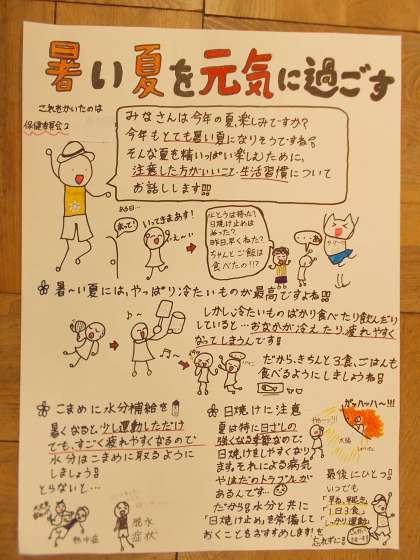 暑い夏を元気に過ごす
これをかいたのは
保健委員会2
みなさんは今年の夏、楽しみですか?
今年もとても暑い夏になりそうですね?
そんな夏を精いっぱい楽しむために、
注意した方がいいこと・生活習慣について
お話しします!!
ある日…
まって!
いってきまあす!
え~い
水とうは持った?
日焼け止めは
ぬった?
昨日、早くねた?
ちゃんとご飯は
食べたの!!?
暑~い夏には、やっぱり冷たいものが最高ですよね!!
しかし、冷たいものばかり食べたり飲んだり
していると…おなかが冷えたり、疲れやすく
なってしまうんです!
だから、きちんと3食、ごはんも
食べるようにしましょうね!
こまめに水分補給を
暑くなると、少し運動しただけ
でも、すごく疲れやすくなるので
水分はこまめに取るように
しましょう!
とらないと…
熱中症
脱水
症状
日焼けに注意
夏は特に日ざしの
強くなる季節なので、
日焼けをしやすくなり
ます。それによる病気
やはだのトラブルが
あるんです…
だから!水分と共に
「日焼け止め」を常備して
おくことをおすすめします!
ガッハッハー!!!
太陽
最後にひとつ!
いつでも
「早ね、早起き」
「1日3食」
「しっかり運動」
忘れずに!